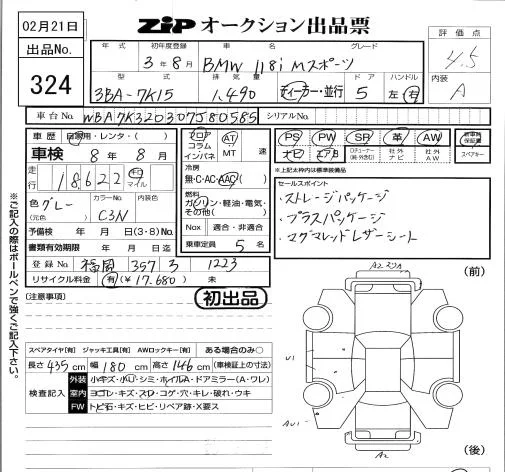 02月21日
ZiP オークション出品票
出品No.
324
年式 初年度登録 車名 グレード
3年8月 BMW 118i Mスポーツ
型式 排気量 ドア ハンドル
3BA-7K15 1,490 ディーラー・並行 5 左 右
評価点
4.5
内装
A
車台No. WBA7K320307J80585 シリアルNo.
車歴 自家用・レンタ・( )
車検 8年 8月
走行 18,622 キロ マイル
色 グレー (元色) カラーNo. C3N 内装色
予備検 年 月 日(3・8)No.
書類有効期限 年 月 日迄
登録No. 福岡 357 す 1223
リサイクル料金 有 (¥17,680) 未
フロア コラム インパネ AT MT 速
冷房 無・C・AC・AAC
燃料 ガソリン・軽油・電気・その他( )
Nox 適合・非適合
乗車定員 5名
PS PW SR 革 AW
ナビ エアB 社外ナビ 社外AW
新車時保証書 スペアキー
※上記太枠内は標準装備品
セールスポイント
・ストレージパッケージ
・プラスパッケージ
・マグマレッドレザーシート
初出品
(注意事項)
※ご記入の際はボールペンで強くご記入下さい。
スペアタイヤ[有] ジャッキ工具[有] AWロックキー[有] ある場合のみ○
長さ435cm 幅180cm 高さ146cm (車検証上の寸法)
検査記入
外装 小キズ・小U・シミ・ホイルA・ドアミラー(A・ワレ)
室内 ヨゴレ・キズ・スレ・コゲ・穴・キレ・破れ・ウキ
FW トビ石・キズ・ヒビ・リペア跡・X要ス
(前)
U1
AU1
A2
(後)